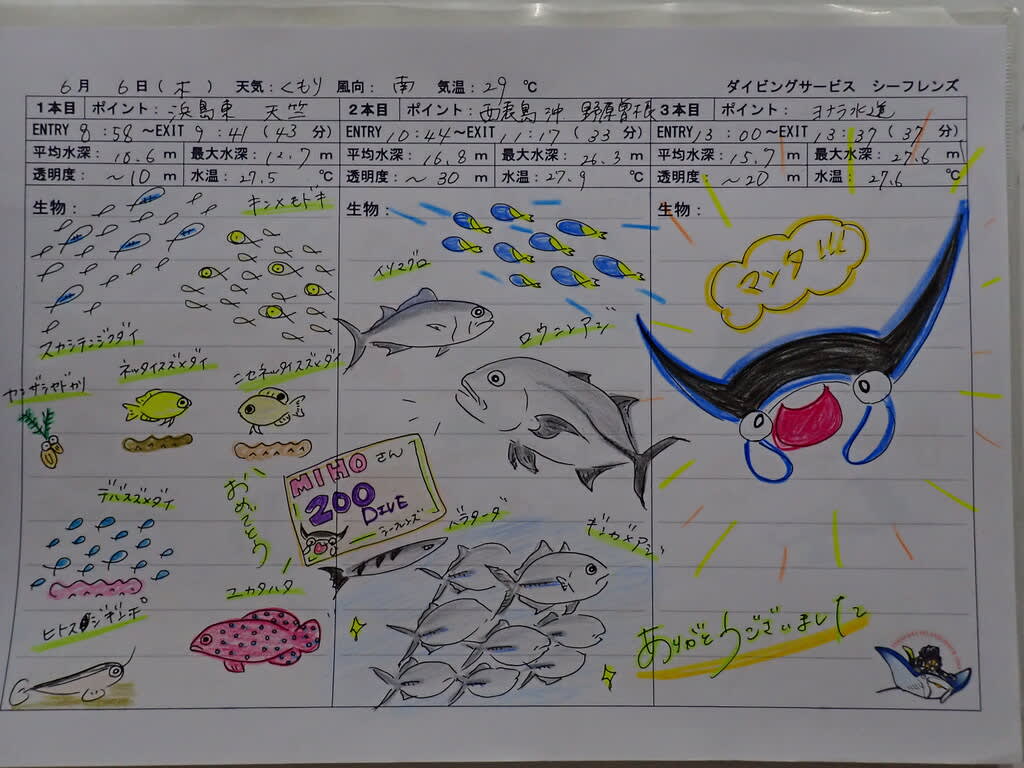 6月 6日(木) 天気:くもり 風向:南 気温:29℃ ダイビングサービス シーフレンズ
1本目 ポイント:浜島東 天竺 2本目 ポイント:西表島沖 野原曽根 3本目 ポイント:ヨナラ水道
ENTRY 8:58~EXIT 9:41(43分) ENTRY 10:44~EXIT 11:17(33分) ENTRY 13:00~EXIT 13:37(37分)
平均水深:10.6m 最大水深:12.7m 平均水深:16.8m 最大水深:26.3m 平均水深:15.7m 最大水深:27.6m
透明度:~10m 水温:27.5℃ 透明度:~30m 水温:27.9℃ 透明度:~20m 水温:27.6℃
生物: キンメモドキ
スカシテンジクダイ
ネッタイスズメダイ ニセネッタイスズメダイ
ヤンザラヤドカリ
デバスズメダイ
おめでとう
ユカタハタ
ヒトスジギンポ
生物:
イソマグロ
ロウニンアジ
MIHOさん
200
DIVE
シーフレンズ
バラクーダ
ギンガメアジ
生物:
マンタ!!!
ありがとうございました